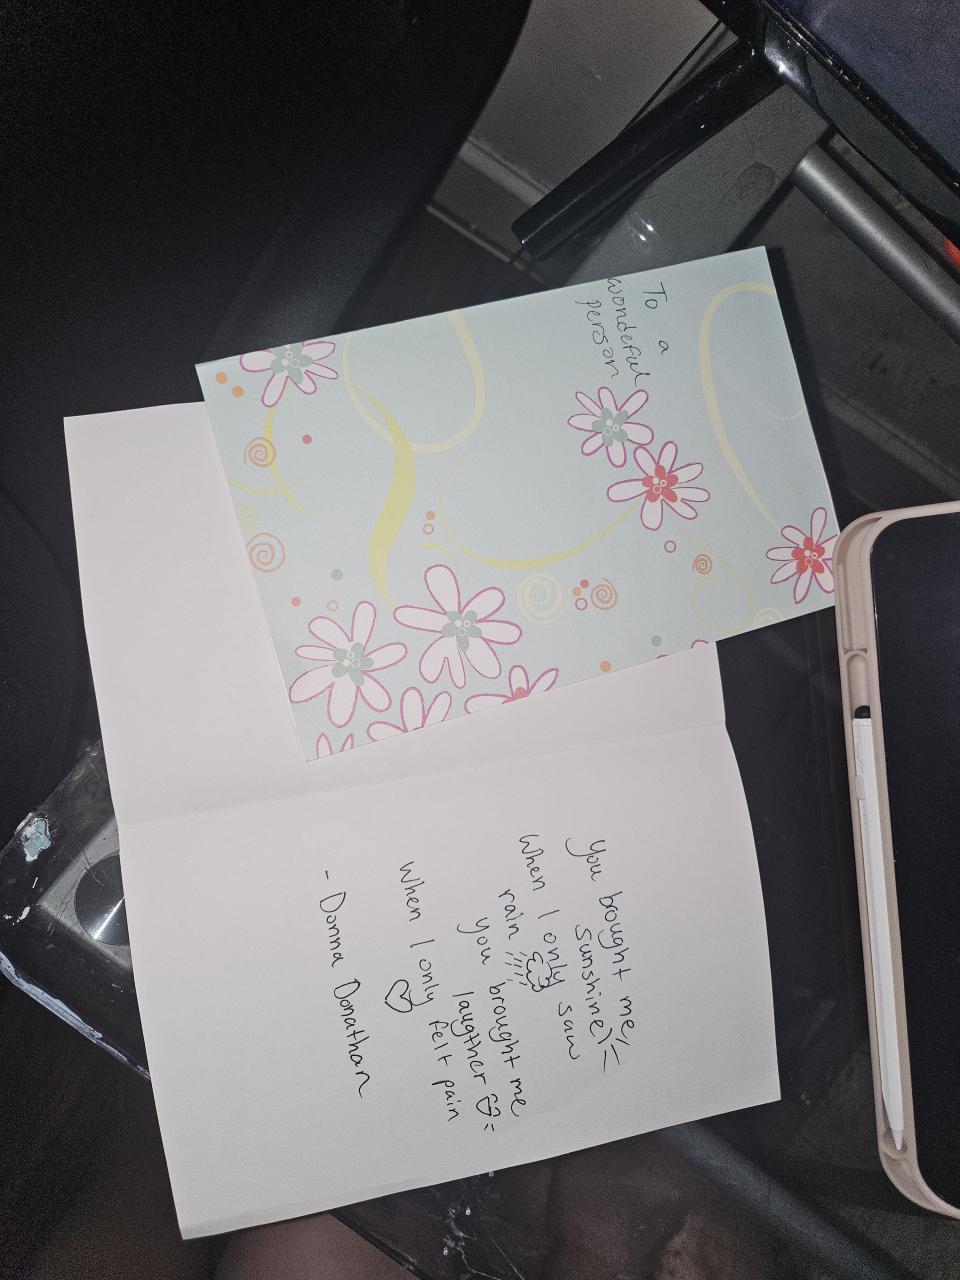 To a
wonderful
person
You brought me
sunshine
When I only saw
rain
you brought me
laugther
When I only felt pain
- Donna Donathan